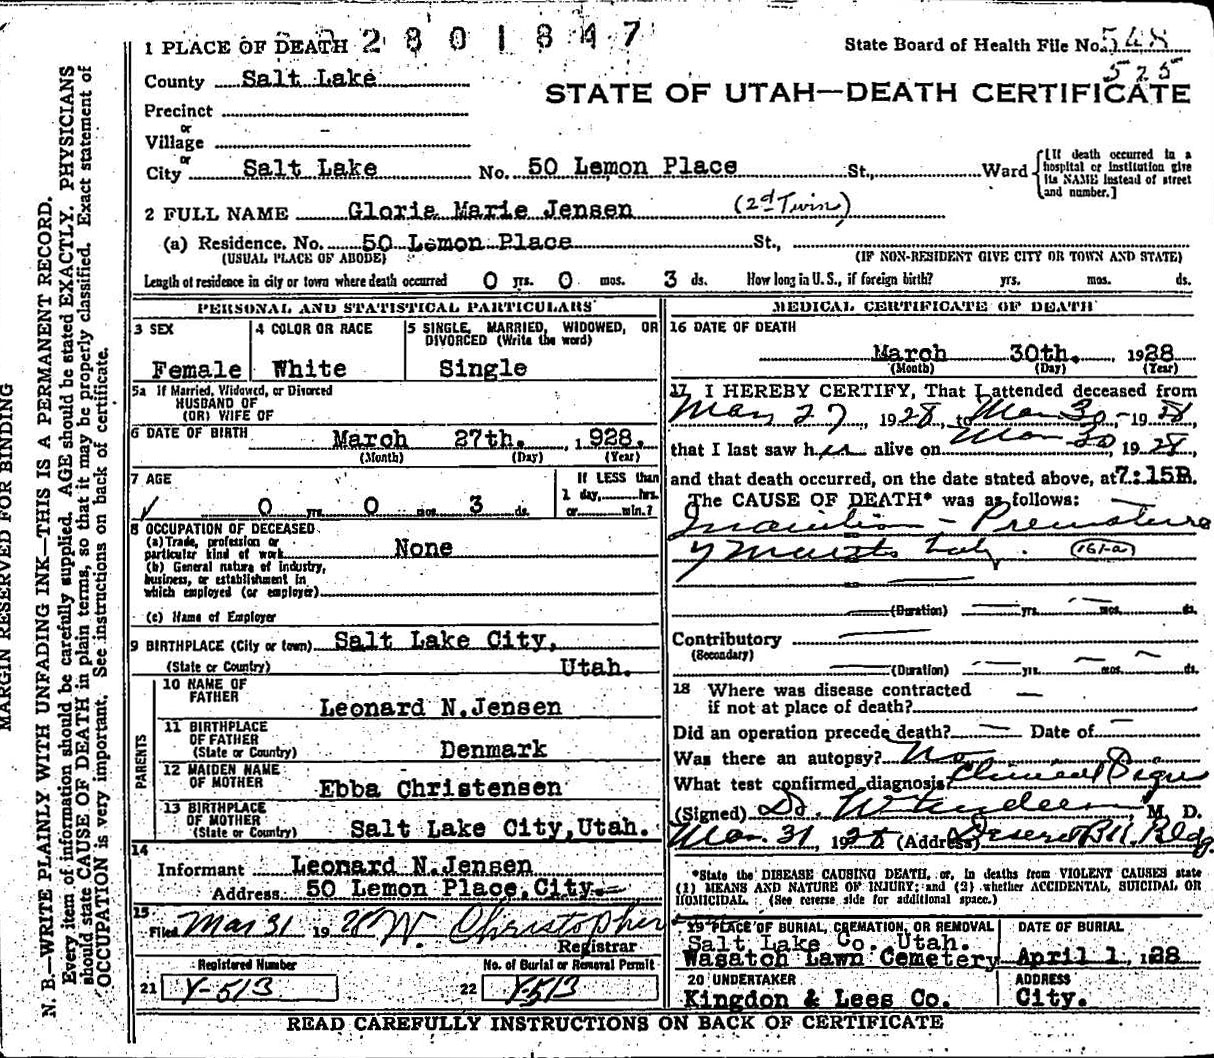 1 PLACE OF DEATH 2801847
State Board of Health File No. 548
525
County Salt Lake
STATE OF UTAH—DEATH CERTIFICATE
Precinct
or
Village
or
City Salt Lake No. 50 Lemon Place St., Ward
[If death occurred in a hospital or institution give its NAME instead of street and number.]
2 FULL NAME Gloria Marie Jensen (2d Twin)
(a) Residence. No. 50 Lemon Place St.,
(USUAL PLACE OF ABODE) (IF NON-RESIDENT GIVE CITY OR TOWN AND STATE)
Length of residence in city or town where death occurred 0 yrs. 0 mos. 3 ds. How long in U. S., if foreign birth? yrs. mos. ds.
PERSONAL AND STATISTICAL PARTICULARS
3 SEX
Female
4 COLOR OR RACE
White
5 SINGLE, MARRIED, WIDOWED, OR
DIVORCED (Write the word)
Single
5a If Married, Widowed, or Divorced
HUSBAND OF
(OR) WIFE OF
6 DATE OF BIRTH
March 27th. 1928.
(Month) (Day) (Year)
7 AGE
0 yrs. 0 mos. 3 ds.
If LESS than
1 day, hrs.
or min.?
8 OCCUPATION OF DECEASED
(a) Trade, profession or
particular kind of work None
(b) General nature of industry,
business, or establishment in
which employed (or employer)
(c) Name of Employer
9 BIRTHPLACE (City or town) Salt Lake City,
(State or Country) Utah.
PARENTS
10 NAME OF
FATHER Leonard N. Jensen
11 BIRTHPLACE
OF FATHER
(State or Country) Denmark
12 MAIDEN NAME
OF MOTHER Ebba Christensen
13 BIRTHPLACE
OF MOTHER
(State or Country) Salt Lake City, Utah.
14
Informant Leonard N. Jensen
Address 50 Lemon Place, City.
15
Filed Mar 31 1928 W. Christopher
Registrar
Registered Number No. of Burial or Removal Permit
21 Y-513 22 Y513
MEDICAL CERTIFICATE OF DEATH
16 DATE OF DEATH
March 30th. 1928
(Month) (Day) (Year)
17 I HEREBY CERTIFY, That I attended deceased from
Mar 27, 1928, to Mar 30 - 1928
that I last saw her alive on Mar 30, 1928,
and that death occurred, on the date stated above, at 7:15P.
The CAUSE OF DEATH* was as follows:
Inanition - Premature
(161-a)
(Duration) yrs. mos. ds.
Contributory
(Secondary)
(Duration) yrs. mos. ds.
18 Where was disease contracted
if not at place of death?
Did an operation precede death? Date of
Was there an autopsy? No
What test confirmed diagnosis? Clinical Signs
(Signed) M. D.
Mar. 31, 1928 (Address) Deseret Bk. Bldg.
*State the DISEASE CAUSING DEATH, or, in deaths from VIOLENT CAUSES state
(1) MEANS AND NATURE OF INJURY; and (2) whether ACCIDENTAL, SUICIDAL OR
HOMICIDAL. (See reverse side for additional space.)
19 PLACE OF BURIAL, CREMATION, OR REMOVAL
Salt Lake Co. Utah.
Wasatch Lawn Cemetery
DATE OF BURIAL
April 1, 1928
20 UNDERTAKER
Kingdon & Lees Co.
ADDRESS
City.
READ CAREFULLY INSTRUCTIONS ON BACK OF CERTIFICATE
MARGIN RESERVED FOR BINDING
N. B.—WRITE PLAINLY WITH UNFADING INK—THIS IS A PERMANENT RECORD.
Every item of information should be carefully supplied. AGE should be stated EXACTLY. PHYSICIANS
should state CAUSE OF DEATH in plain terms, so that it may be properly classified. Exact statement of
OCCUPATION is very important. See instructions on back of certificate.